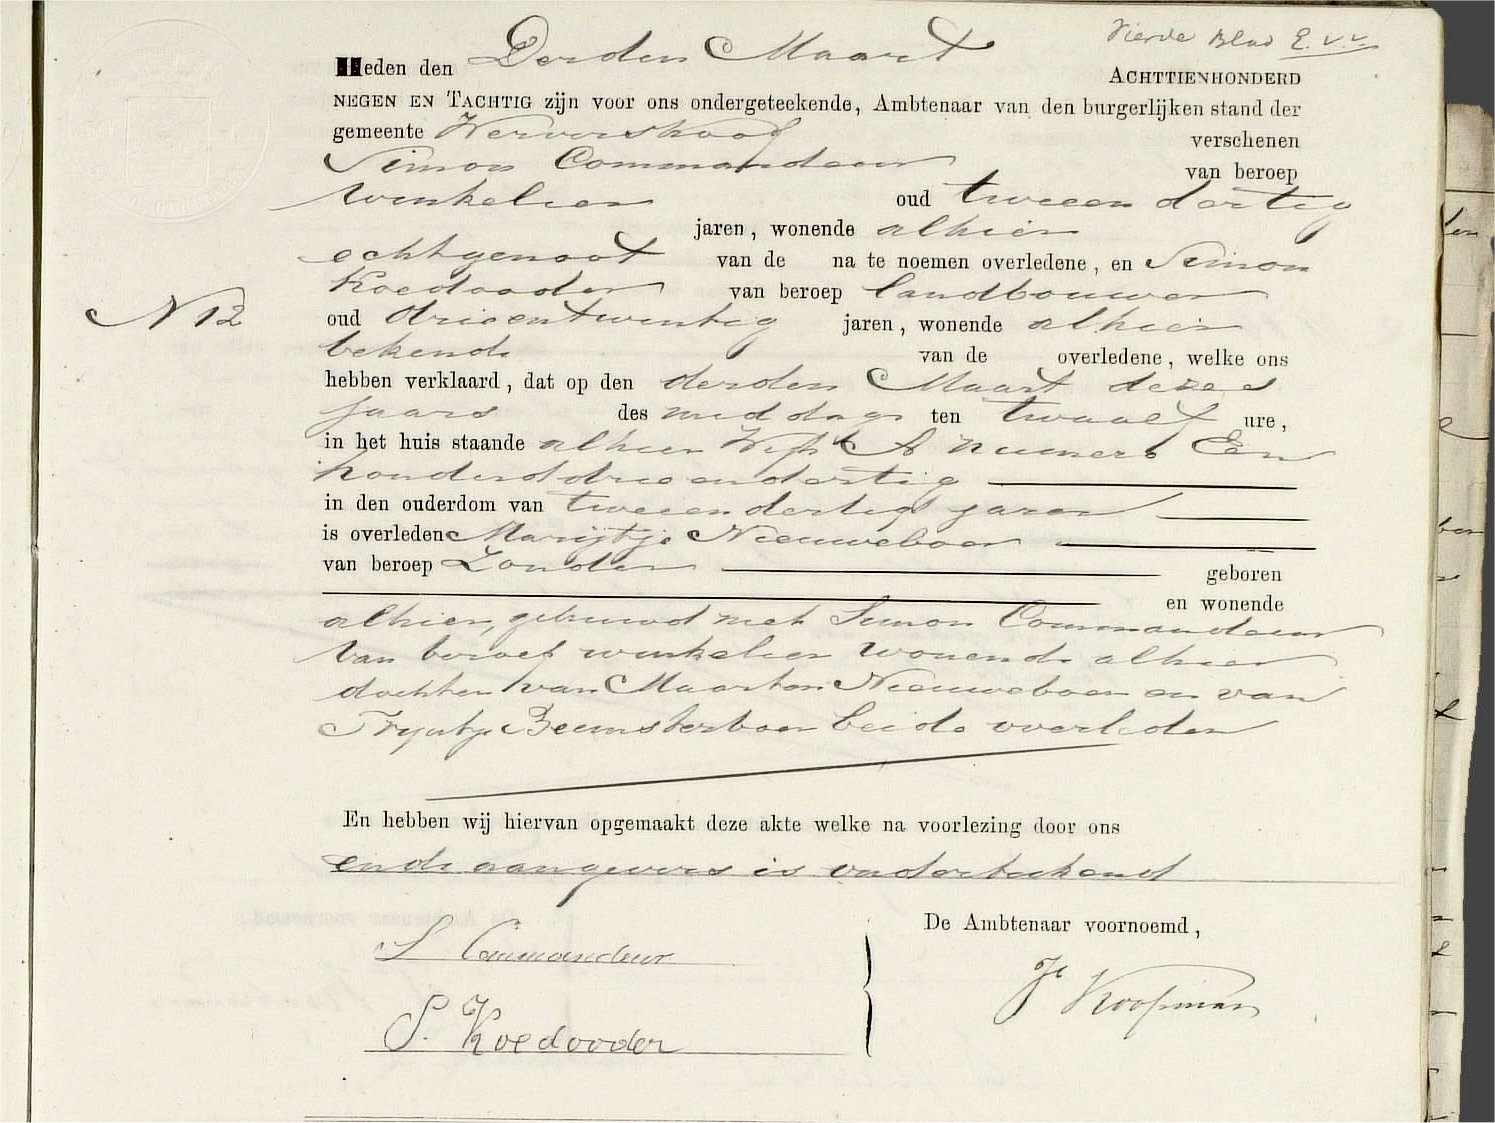 Vierde Blad E.v.v.
Heden den Derden Maart ACHTTIENHONDERD
NEGEN EN TACHTIG zijn voor ons ondergeteekende, Ambtenaar van den burgerlijken stand der
gemeente Wervershoof verschenen
Simon Commandeur van beroep
winkelier oud tweeendertig
jaren, wonende alhier
echtgenoot van de na te noemen overledene, en Simon
Koedooder van beroep landbouwer
N 12
oud drieentwintig jaren, wonende alhier
bekende van de overledene, welke ons
hebben verklaard, dat op den derden Maart dezes
jaars des middags ten twaalf ure,
in het huis staande alhier Wijk A numero Een
honderddrieendertig
in den ouderdom van tweeendertig jaren
is overleden Marijtje Nieuweboer
van beroep Zonder geboren
en wonende
alhier, gehuwd met Simon Commandeur
van beroep winkelier wonende alhier
dochter van Maarten Nieuweboer en van
Tryntje Beemsterboer beide overleden
En hebben wij hiervan opgemaakt deze akte welke na voorlezing door ons
en de aangevers is onderteekend
De Ambtenaar voornoemd,
S Commandeur
Koopman
S. Koedooder